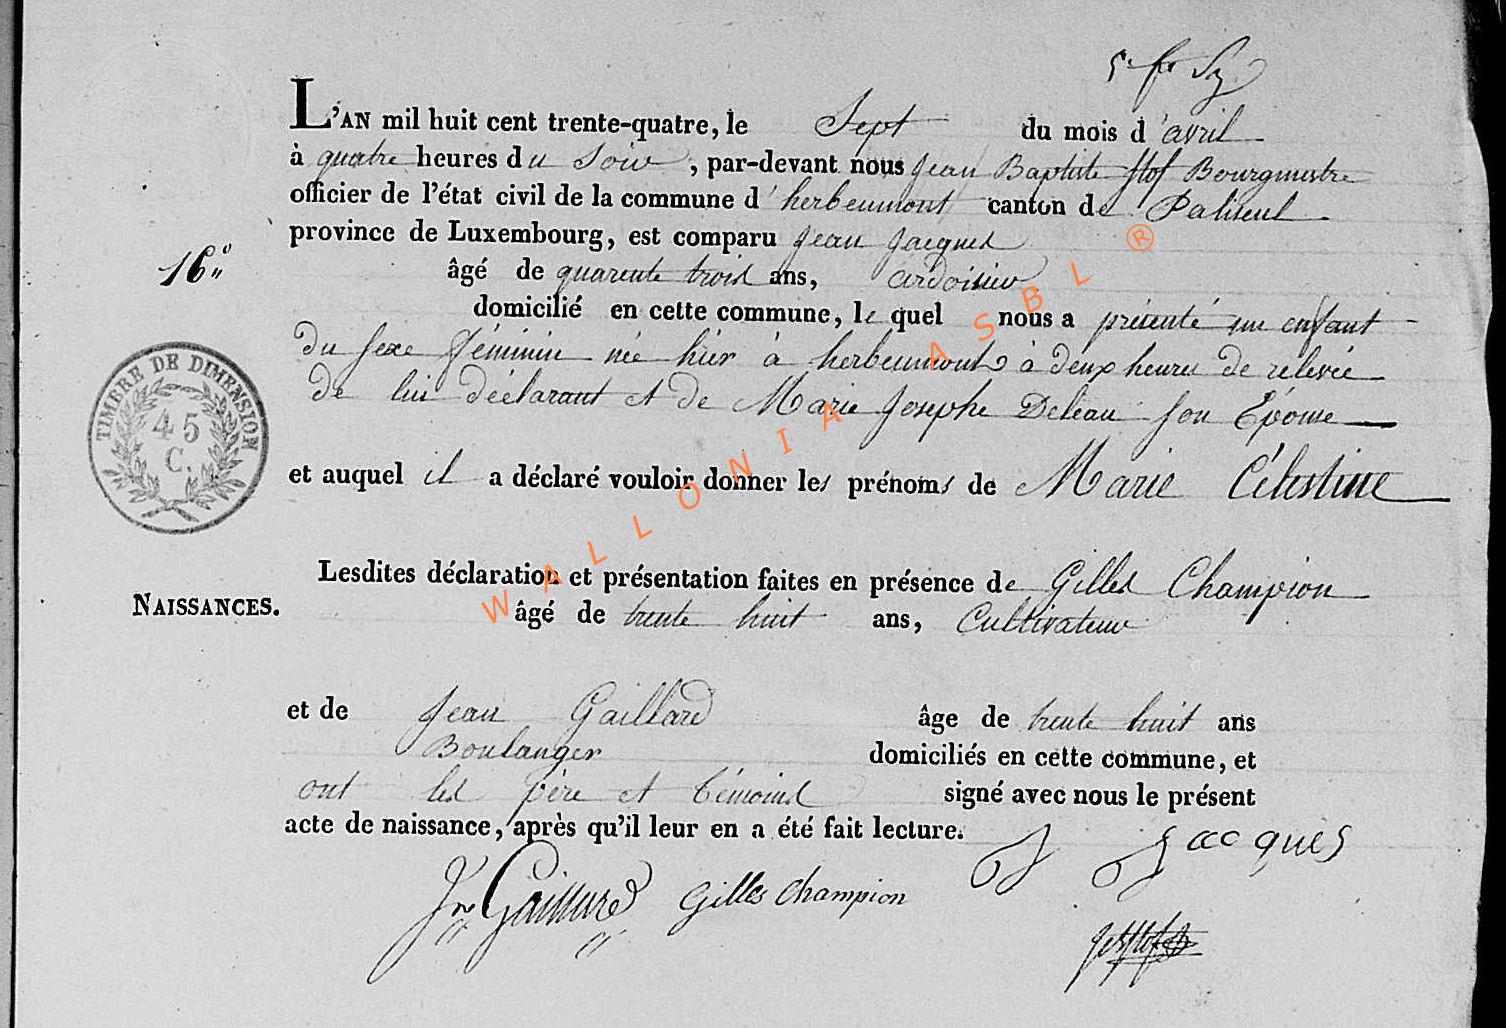 L'AN mil huit cent trente-quatre, le Sept du mois d'avril
à quatre heures du soir, par-devant nous Jean Baptiste Bourgmestre
officier de l'état civil de la commune d'herbeumont canton de Paliseul
province de Luxembourg, est comparu Jean Jacques
16
âgé de quarente trois ans, ardoisier
domicilié en cette commune, le quel nous a présenté un enfant
du sexe féminin née hier à herbeumont à deux heures de relevée
de lui déclarant et de Marie Josephe Deleau son Epouse
et auquel il a déclaré vouloir donner les prénoms de Marie Célestine
TIMBRE DE DIMENSION
45
C.
Lesdites déclaration et présentation faites en présence de Gilles Champion
NAISSANCES.
âgé de trente huit ans, Cultivateur
et de Jean Gaillard âge de trente huit ans
Boulanger domiciliés en cette commune, et
ont les père et témoins signé avec nous le présent
acte de naissance, après qu'il leur en a été fait lecture.
J Jacques
Jn Gaillard Gilles Champion
WALLONIA ASBL ®